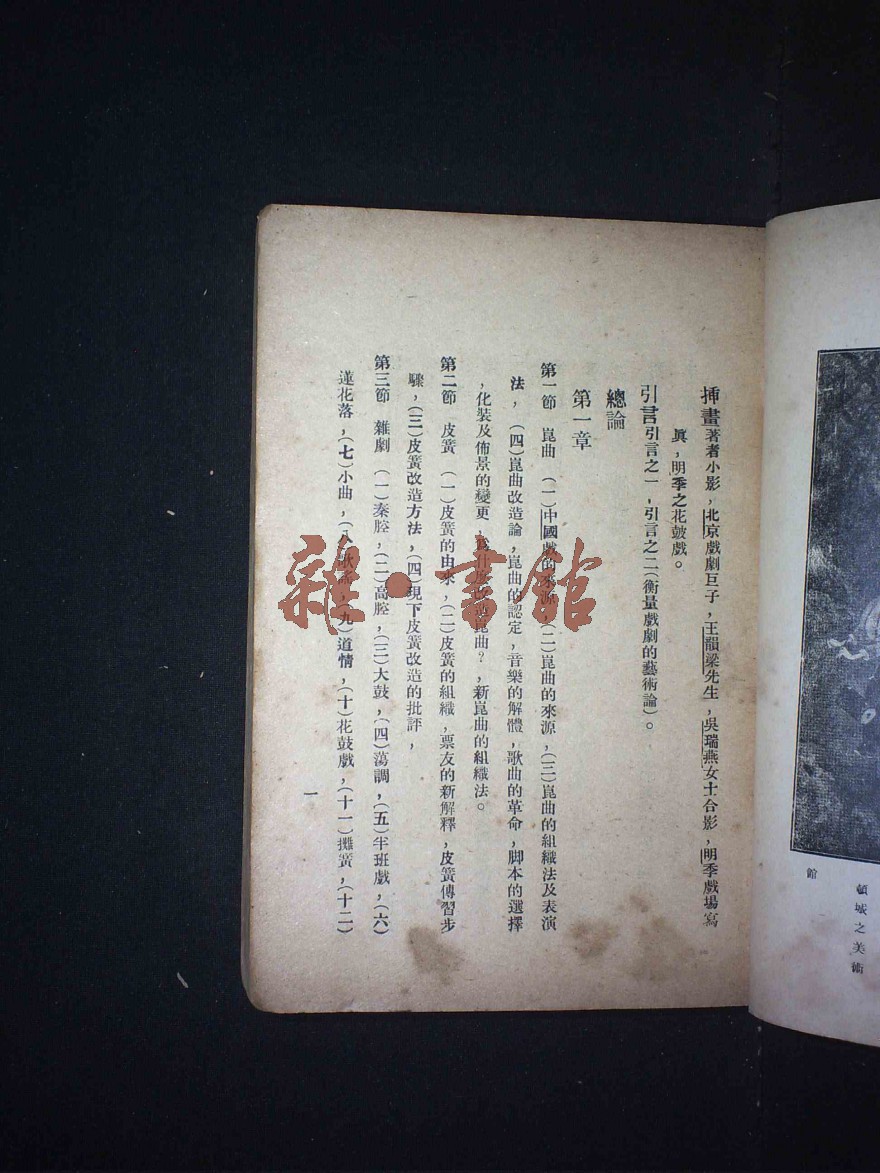 插畫著者小影，北京戲劇巨子，王韻梁先生，吳瑞燕女士合影，明季戲場寫
眞，明季之花鼓戲。
引言引言之一，引言之二（衡量戲劇的藝術論）。
總論
第一章
第一節　崑曲　（一）中國戲的來源，（二）崑曲的來源，（三）崑曲的組織法及表演
法，（四）崑曲改造論，崑曲的認定，音樂的解體，歌曲的革命，脚本的選擇
，化裝及佈景的變更，爲什麽改造崑曲？，新崑曲的組織法。
第二節　皮簧　（一）皮簧的由來，（二）皮簧的組織，票友的新解釋，皮簧傳習步
驟，（三）皮簧改造方法，（四）現下皮簧改造的批評，
第三節　雜劇　（一）秦腔，（二）高腔，（三）大鼓，（四）蕩調，（五）半班戲，（六）
蓮花落，（七）小曲，（八）歌謠，（九）道情，（十）花鼓戲，（十一）攤簧，（十二）
一
頓城之美術
館
雜·書館